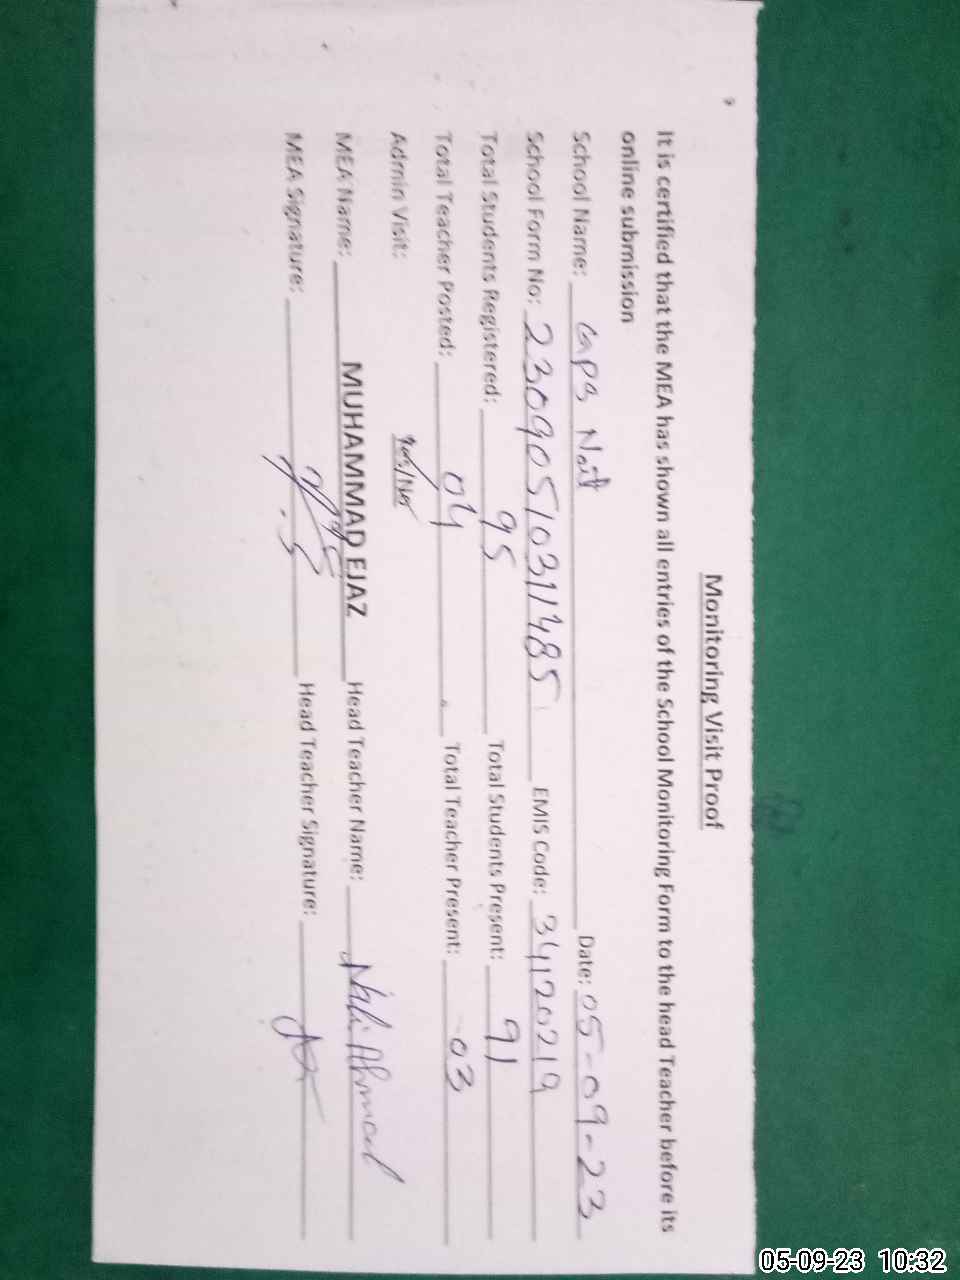 Monitoring Visit Proof
It is certified that the MEA has shown all entries of the School Monitoring Form to the head Teacher before its
online submission
School Name: GPS Nait Date: 05-09-23
School Form No: 23090510311485 EMIS Code: 34120219
Total Students Registered: 95 Total Students Present: 91
Total Teacher Posted: 04 Total Teacher Present: 03
Admin Visit: Yes/No
MEA Name: MUHAMMAD EJAZ Head Teacher Name: Ahmad
MEA Signature: Head Teacher Signature:
05-09-23 10:32